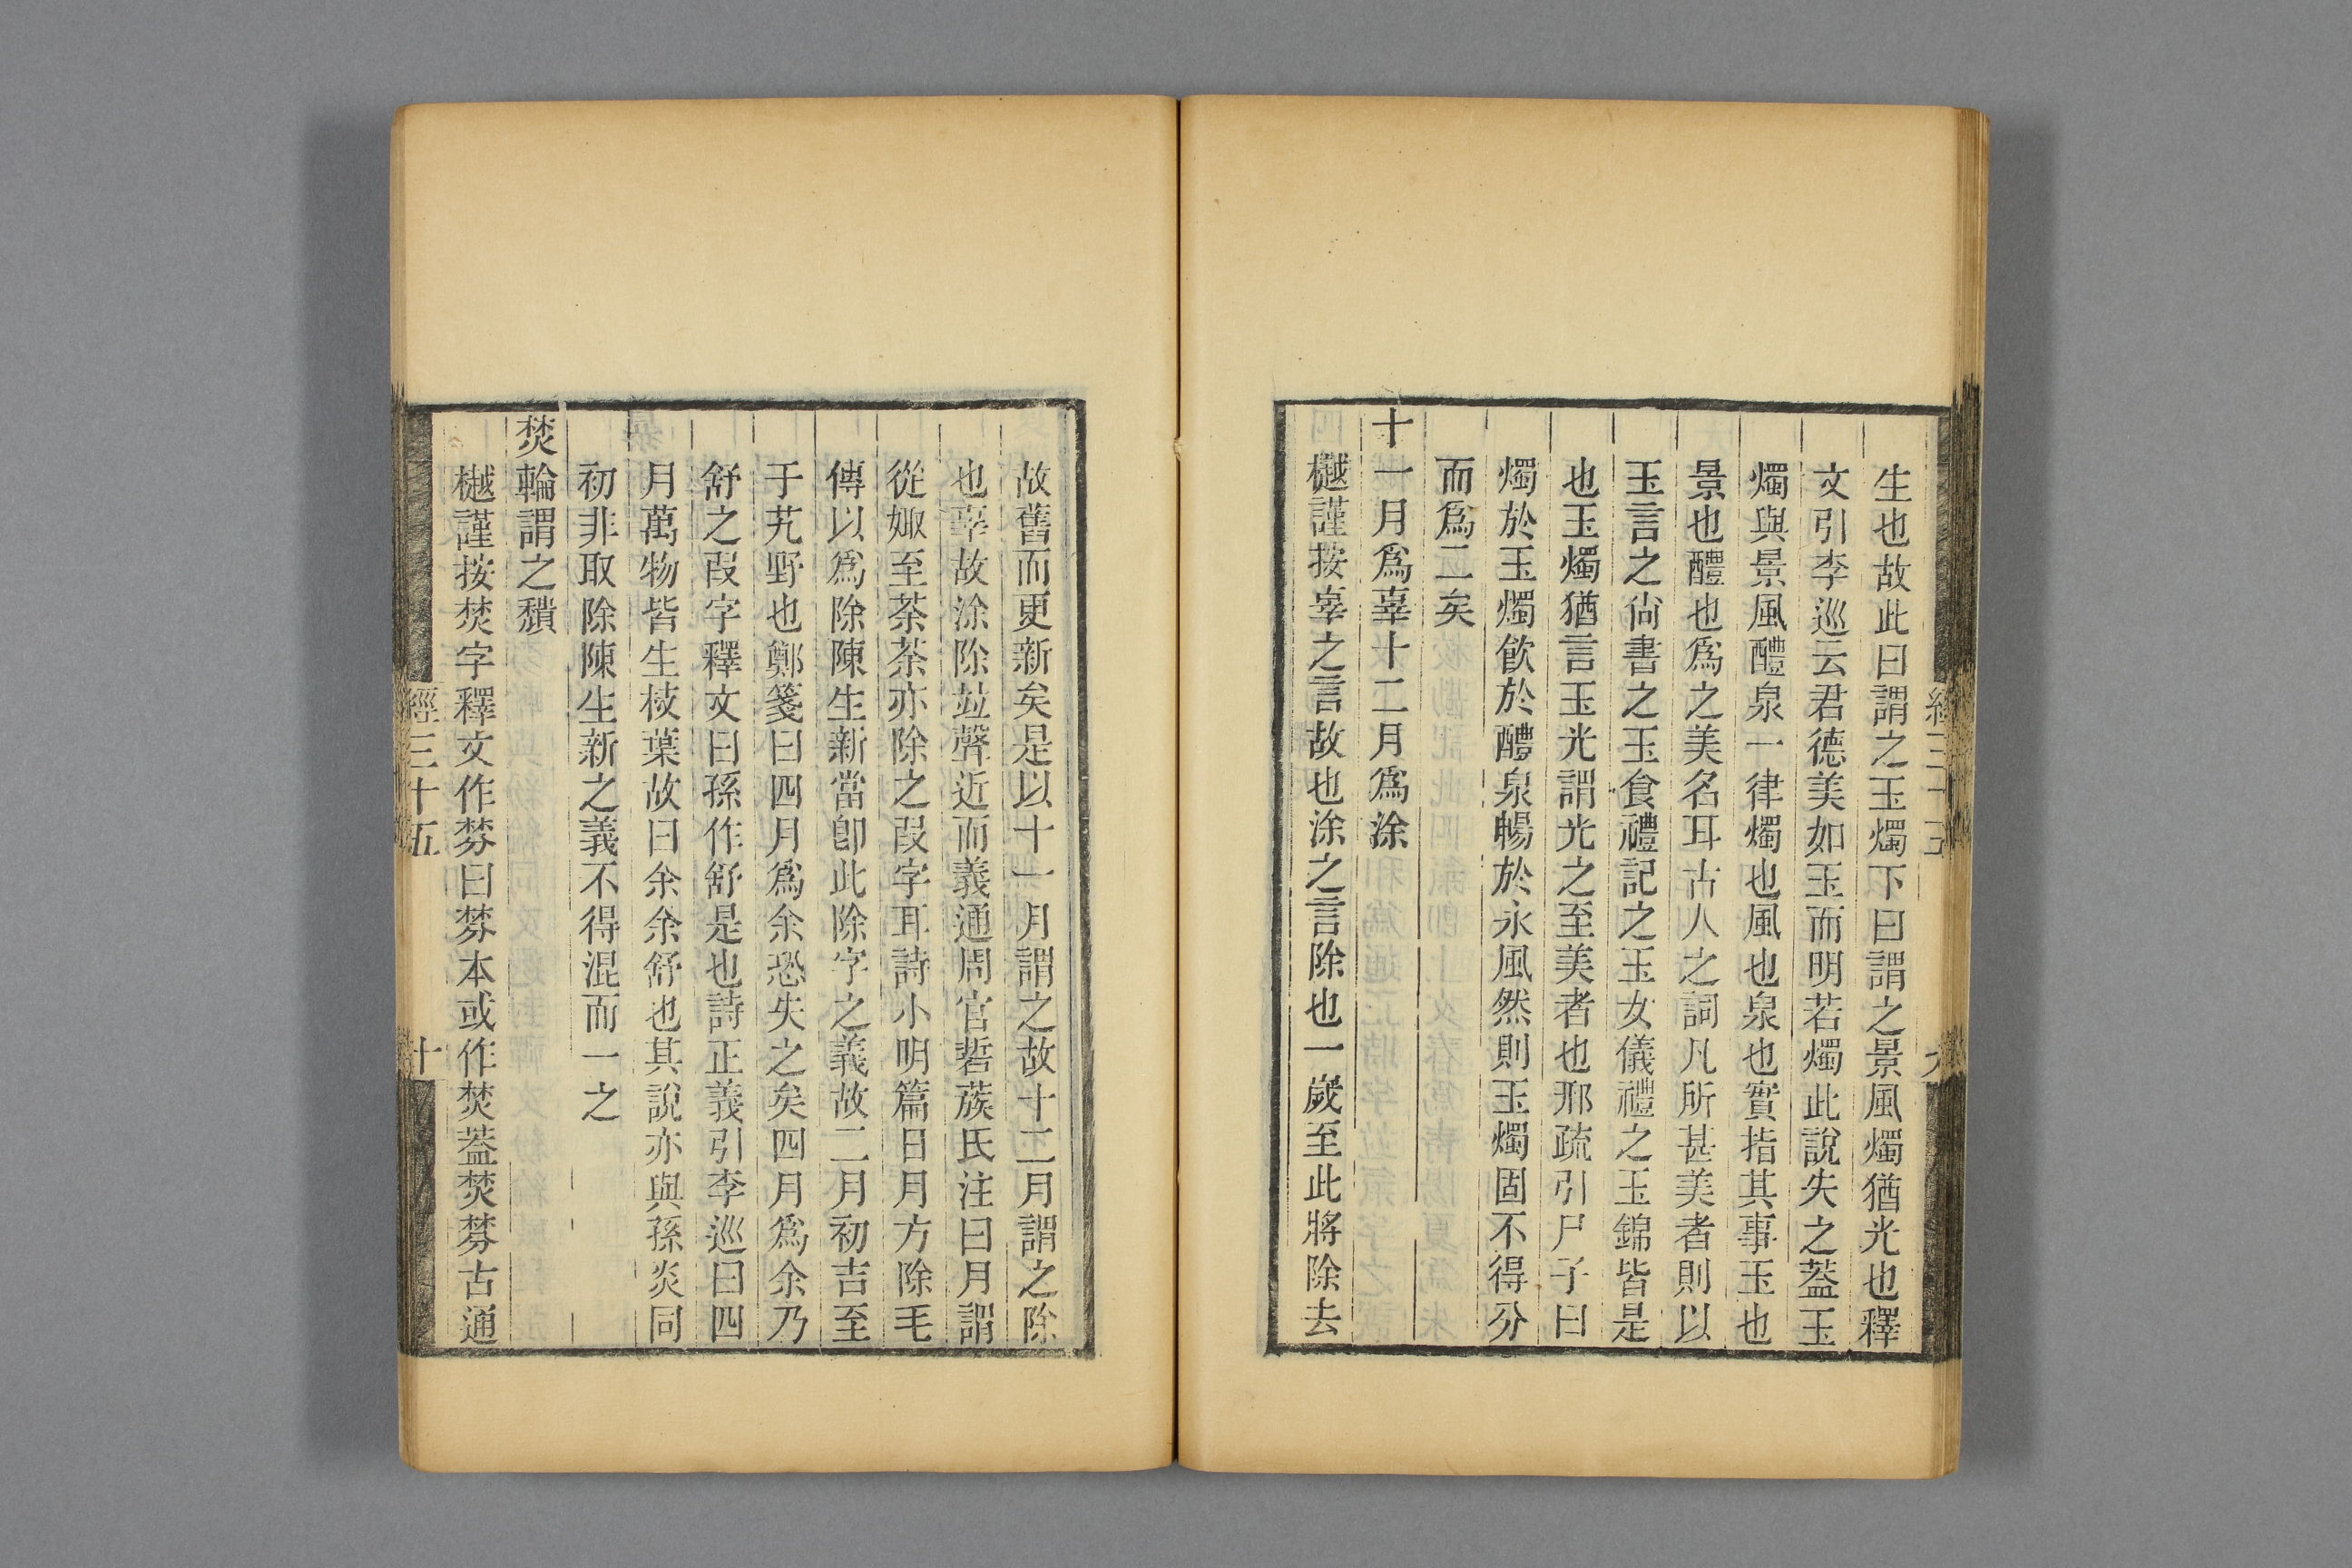 生也故此曰謂之玉燭下曰謂之景風燭猶光也釋
文引李巡云君德美如玉而明若燭此說失之葢玉
燭與景風醴泉一律燭也風也泉也實指其事玉也
景也醴也爲之美名耳古人之詞凡所甚美者則以
玉言之尙書之玉食禮記之玉女儀禮之玉錦皆是
也玉燭猶言玉光謂光之至美者也邢疏引尸子曰
燭於玉燭飮於醴泉暢於永風然則玉燭固不得分
而爲二矣
十一月爲辜十二月爲涂
樾謹按辜之言故也涂之言除也一歲至此將除去
故舊而更新矣是以十一月謂之故十二月謂之除
也辜故涂除竝聲近而義通周官硩蔟氏注曰月謂
從娵至荼荼亦除之叚字耳詩小明篇日月方除毛
傳以爲除陳生新當卽此除字之義故二月初吉至
于艽野也鄭箋曰四月爲余恐失之矣四月爲余乃
舒之叚字釋文曰孫作舒是也詩正義引李巡曰四
月萬物皆生枝葉故曰余余舒也其說亦與孫炎同
初非取除陳生新之義不得混而一之
焚輪謂之穨
樾謹按焚字釋文作棼曰棼本或作焚葢焚棼古通
經三十五
十